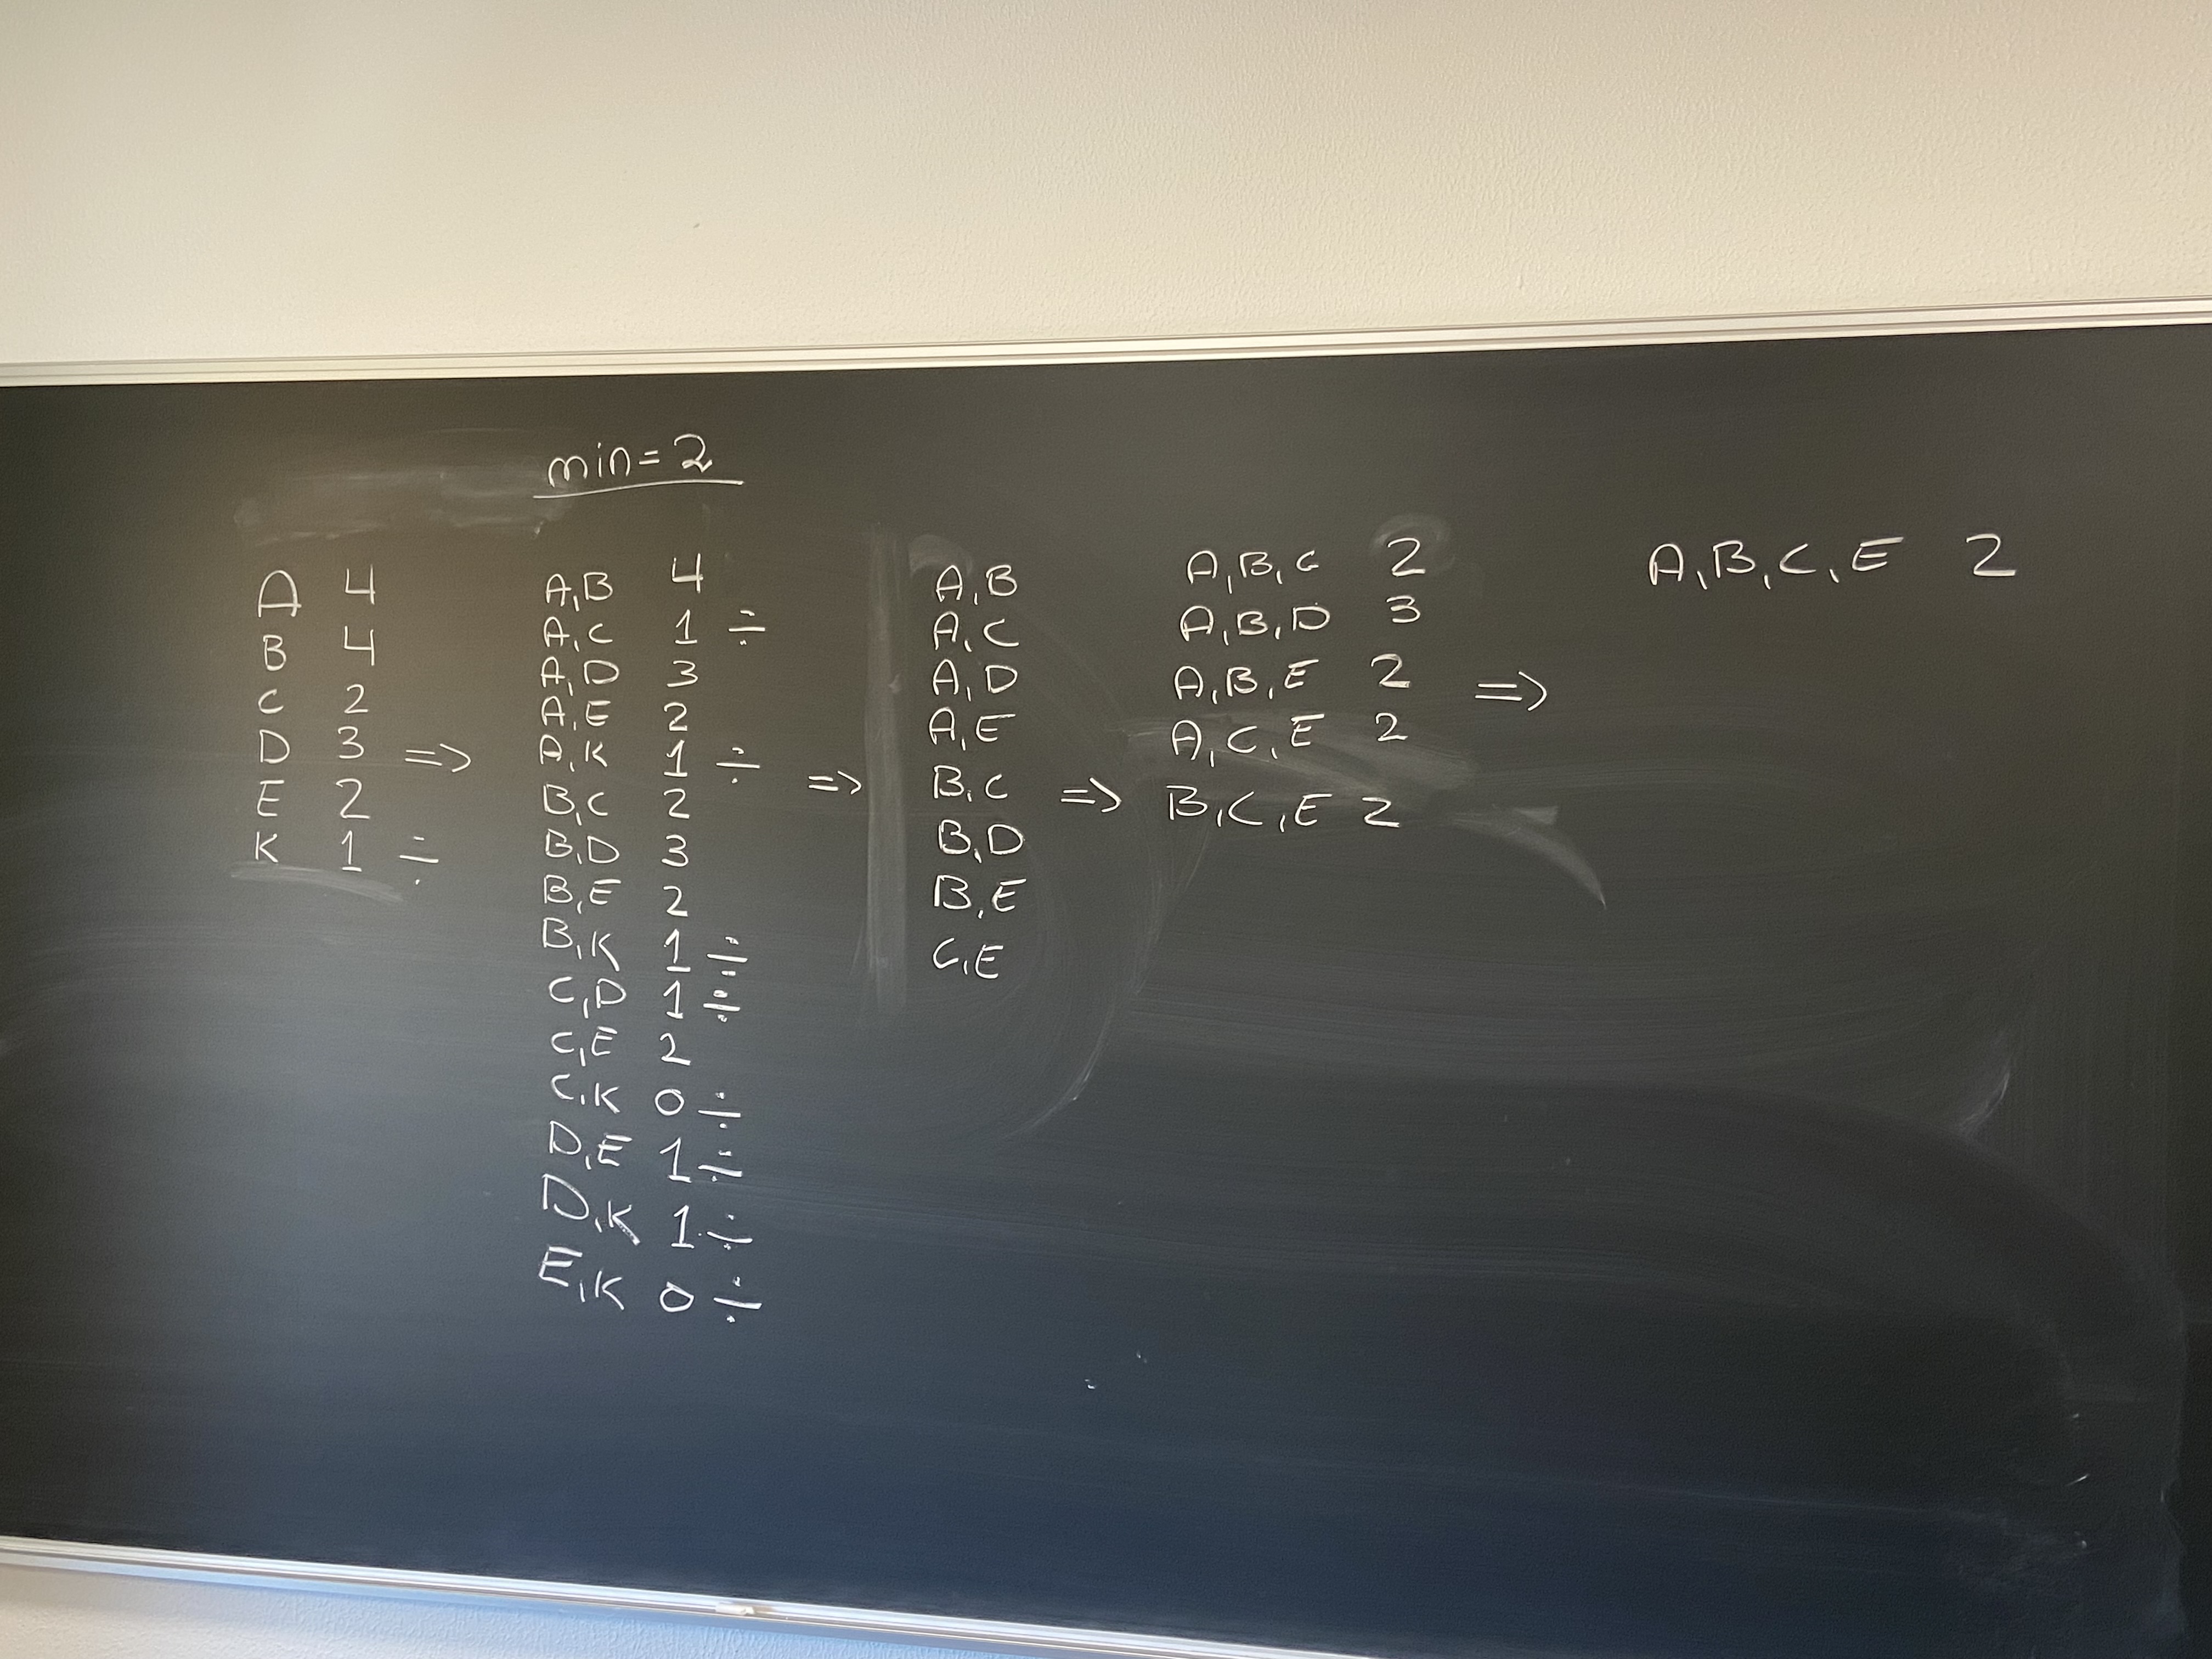 min = 2
A 4
B 4
C 2
D 3 =>
E 2
K 1 ÷
A,B 4
A,C 1 ÷
A,D 3
A,E 2
A,K 1 ÷
B,C 2
B,D 3
B,E 2
B,K 1 ÷
C,D 1 ÷
C,E 2
C,K 0 ÷
D,E 1 ÷
D,K 1 ÷
E,K 0 ÷
=>
A,B
A,C
A,D
A,E
B,C =>
B,D
B,E
C,E
A,B,C 2
A,B,D 3
A,B,E 2 =>
A,C,E 2
B,C,E 2
A,B,C,E 2